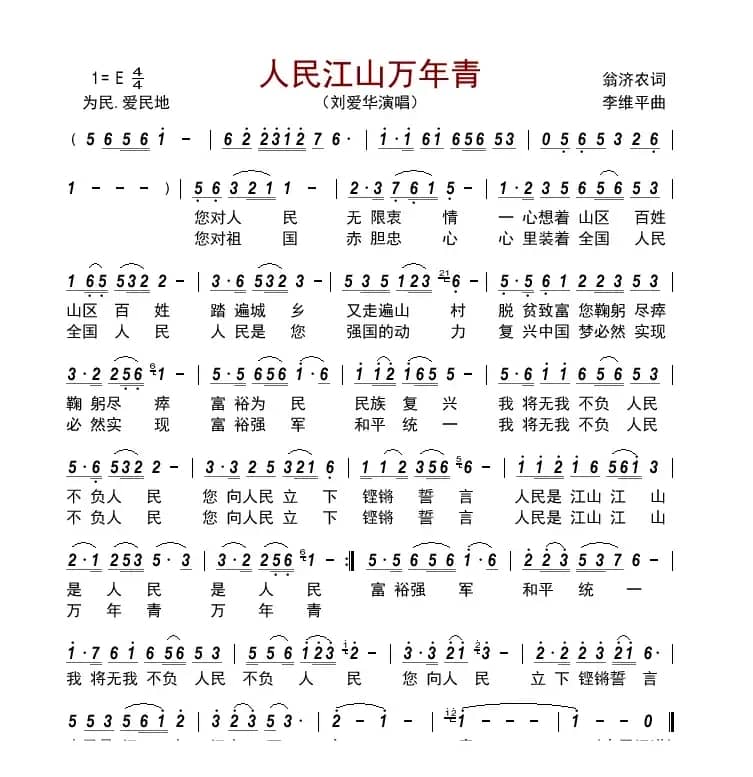 人民江山万年青
1= E 4/4
翁济农词
为民.爱民地
（刘爱华演唱）
李维平曲
( 5 6 5 6 1 - | 6 2 2312 7 6· | 1·1 61 656 53 | 0 5 6 5 3 2 6 |
1 - - - ) | 5 6 3 2 1 1 - | 2·3 7 6 1 5 - | 1·2 3 5 6 5 6 5 3 |
您对人 民 无 限衷 情 一 心想着 山区 百姓
您对祖 国 赤 胆忠 心 心 里装着 全国 人民
1 65 532 2 - | 3·6 532 3 - | 5 3 5 123 21 6· | 5·5 6 1 2 2 2 3 5 |
山区 百 姓 踏 遍城 乡 又走遍山 村 脱 贫致富 您鞠躬 尽瘁
全国 人 民 人 民是 您 强国的动 力 复 兴中国 梦必然 实现
3·2 256 6 1 - | 5·5 656 1·6 | 1 12 165 5 - | 5·6 1 1 6 5 6 5 3 |
鞠 躬尽 瘁 富 裕为 民 民族 复 兴 我 将无我 不负 人民
必 然实 现 富 裕强 军 和平 统 一 我 将无我 不负 人民
5·6 532 2 - | 3·3 2 5 3 321 6 | 11 2 356 5 6 - | 1 1 2 1 6 561 3 |
不 负人 民 您 向人民 立 下 铿锵 誓 言 人民是 江山 江 山
不 负人 民 您 向人民 立 下 铿锵 誓 言 人民是 江山 江 山
2·1 253 5·3 | 3·2 256 6 1 - :‖ 5·5 656 1·6 | 2 23 537 6 - |
是 人 民 是 人 民 富 裕强 军 和平 统 一
万 年 青 万 年 青
1·7 6 1 6 5 5 3 | 5 5 123 12 2 - | 3·3 21 2 3 - | 2·2 2 3 21 6· |
我 将无我 不负 人民 不 负 人 民 您 向人 民 立 下 铿锵誓 言
5 5 3 5 6 1 2 | 3 2 3 5 3 | 2 - 1 - | 12 1 - - - | 1 - - 0 ‖